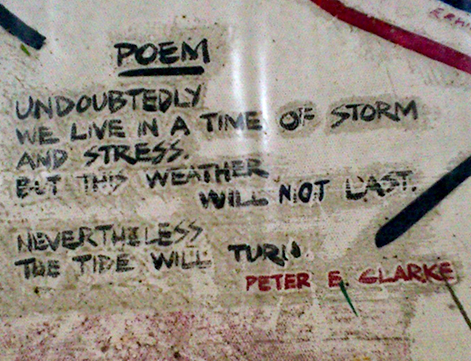 POEM
UNDOUBTEDLY
WE LIVE IN A TIME OF STORM
AND STRESS.
BUT THIS WEATHER
WILL NOT LAST.
NEVERTHELESS
THE TIDE WILL TURN.
PETER E. CLARKE